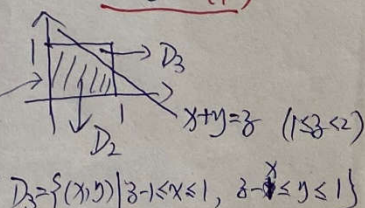 1
D₃
1
x+y=z (1≤z<2)
D₂
D₃={(x,y)|z-1≤x≤1, z-x≤y≤1}